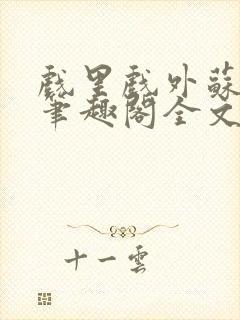 戲里戲外蘇
筆趣閣全文
十一雲